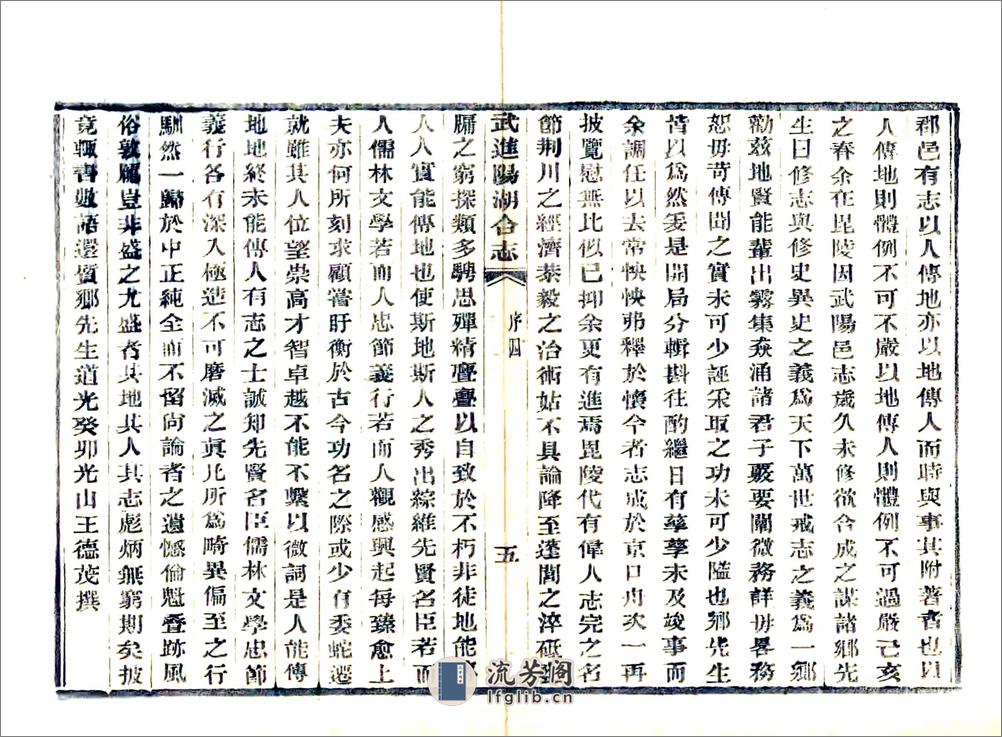 郡邑有志以人傳地亦以地傳人而時與事其附著者也以
人傳地則體例不可不嚴以地傳人則體例不可過嚴己亥
之春余在毘陵因武陽邑志歲久未修欲合成之謀諸鄉先
生曰修志與修史異史之義爲天下萬世戒志之義爲一鄉
勸玆地賢能輩出霧集猋涌諸君子覈要闡微務詳毋畧務
恕毋苛傳聞之實未可少誣采取之功未可少隘也鄉先生
皆以爲然爰是開局分輯斟往酌繼日有孳孳未及竣事而
余調任以去常怏怏弗釋於懷今者志成於京口舟次一再
披覽慰無比似已抑余更有進焉毘陵代有偉人志完之名
節荆川之經濟恭毅之治術姑不具論降至蓬閭之淬砥
牖之窮探類多騁思殫精亹亹以自致於不朽非徒地能
人人實能傳地也使斯地斯人之秀出綜維先賢名臣若而
人儒林文學若而人忠節義行若而人觀感興起每臻愈上
夫亦何所刻求顧嘗盱衡於古今功名之際或少有委蛇遷
就雖其人位望崇高才智卓越不能不繫以微詞是人能傳
地地終未能傳人有志之士誠知先賢名臣儒林文學忠節
義行各有深入極造不可磨滅之眞凡所爲畸異偏至之行
馴然一歸於中正純全而不留尚論者之遺憾倫魁疊跡風
俗敦龐豈非盛之尤盛者其地其人其志彪炳無窮期矣披
竟輒書數語還質鄉先生道光癸卯光山王德茂撰
武進陽湖合志
序四
五
流芳阁
lfglib.cn